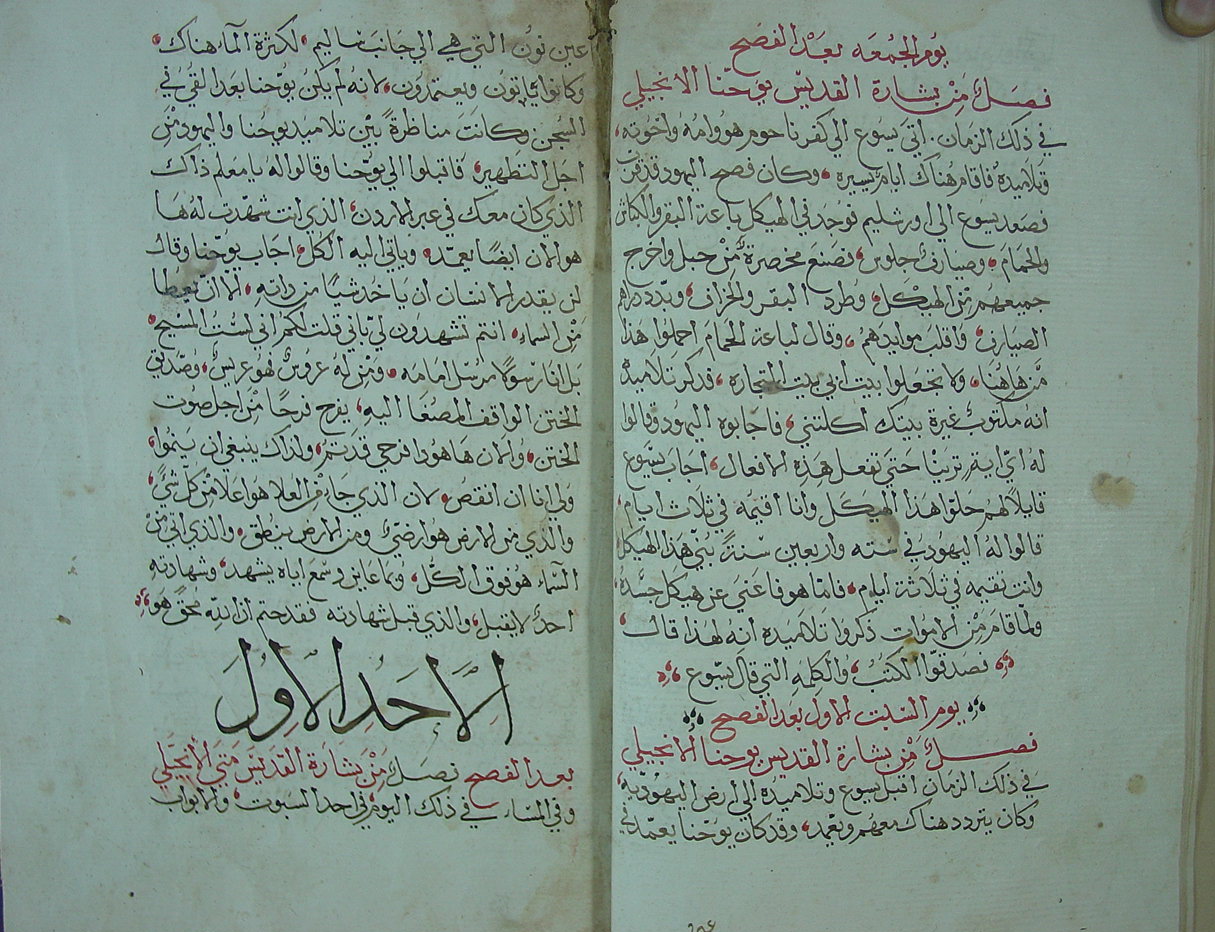 يوم الجمعه بعد الفصح
فصل من بشارة القديس يوحنا الانجيلي
في ذلك الزمان. اتى يسوع الي كفرناحوم هو وامه واخوته
وتلاميده فاقام هناك ايام يسيره وكان فصح اليهود قد قرب
فصعد يسوع الي اورشليم فوجد في الهيكل باعة البقر والكباش
والحمام وصيارف جلوس فصنع مخصرة من حبل واخرج
جميعهم من الهيكل وطرد البقر والخراف وبدد دراهم
الصيارف واقلب موايدهم وقال لباعة الحمام احملوا هذا
من هاهنا ولا تجعلوا بيت ابي بيت التجارة فدكر تلاميده
انه مكتوب غيرة بيتك اكلتني فاجابوه اليهود وقالوا
له اي اية ترينا حتى تفعل هذه الافعال اجاب يسوع
قايلا لهم حلوا هذا الهيكل وانا اقيمه في ثلاث ايام
قالوا له اليهود في سته واربعين سنة بني هذا الهيكل
وانت تقيمه في ثلاثة ايام فاما هو فاعني عن هيكل جسده
ولما قام من الاموات ذكروا تلاميده انه لهذا قال
فصدقوا الكتب والكلمه التي قال يسوع
يوم السبت الاول بعد الفصح
فصل من بشارة القديس يوحنا الانجيلي
في ذلك الزمان اقبل يسوع وتلاميده الي ارض اليهودية
وكان يتردد هناك معهم ويعمد وقد كان يوحنا يعمد في
عين نون التي هي الي جانب ساليم لكثرة الماء هناك
وكانوا ياتون ويعتمدون لانه لم يكن يوحنا بعد القي في
السجن وكانت مناظرة بين تلاميد يوحنا واليهود من
اجل التطهير فاقبلوا الي يوحنا وقالوا له يا معلم ذاك
الذي كان معك في عبر الاردن الذي انت شهدت له ها
هو الان ايضا يعمد وياتي اليه الكل اجاب يوحنا وقال
لن يقدر الانسان ان ياخد شيا من داته الا ان يعطا
من السماء انتم تشهدون لي باني قلت لكم اني لست المسيح
بل انا رسولا مرسل امامه ومن له عروس فهو عريس وصديق
الختن الواقف المصغا اليه يفرح فرحا من اجل صوت
الختن والان ها هودا فرحي قد تم ولذلك ينبغي ان ينموا
ولي انا ان انقص لان الذي جاء من العلا هو اعلا من كل شي
والذي من الارض هو ارضي ومن الارض ينطق والذي اتي من
السماء هو فوق الكل وبما عاين وسمع اياه يشهد وشهادته
احد لا يقبل والذي قبل شهادته فقد ختم ان الله محق هو
الاحد الاول
بعد الفصح فصل من بشارة القديس متى الانجيلي
وفي المساء في ذلك اليوم في احد السبوت والابواب